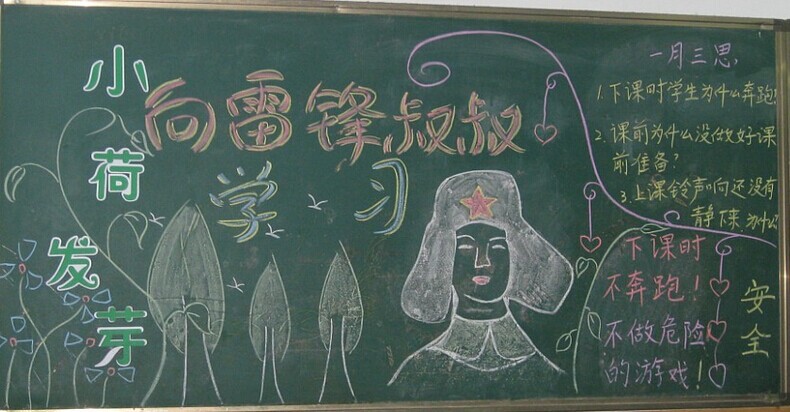 小荷发芽
向雷锋叔叔
学习
一月三思
1.下课时学生为什么奔跑
2.课前为什么没做好课
前准备?
3.上课铃声响还没有
静下来为什么
下课时
不奔跑!
不做危险
的游戏!
安全